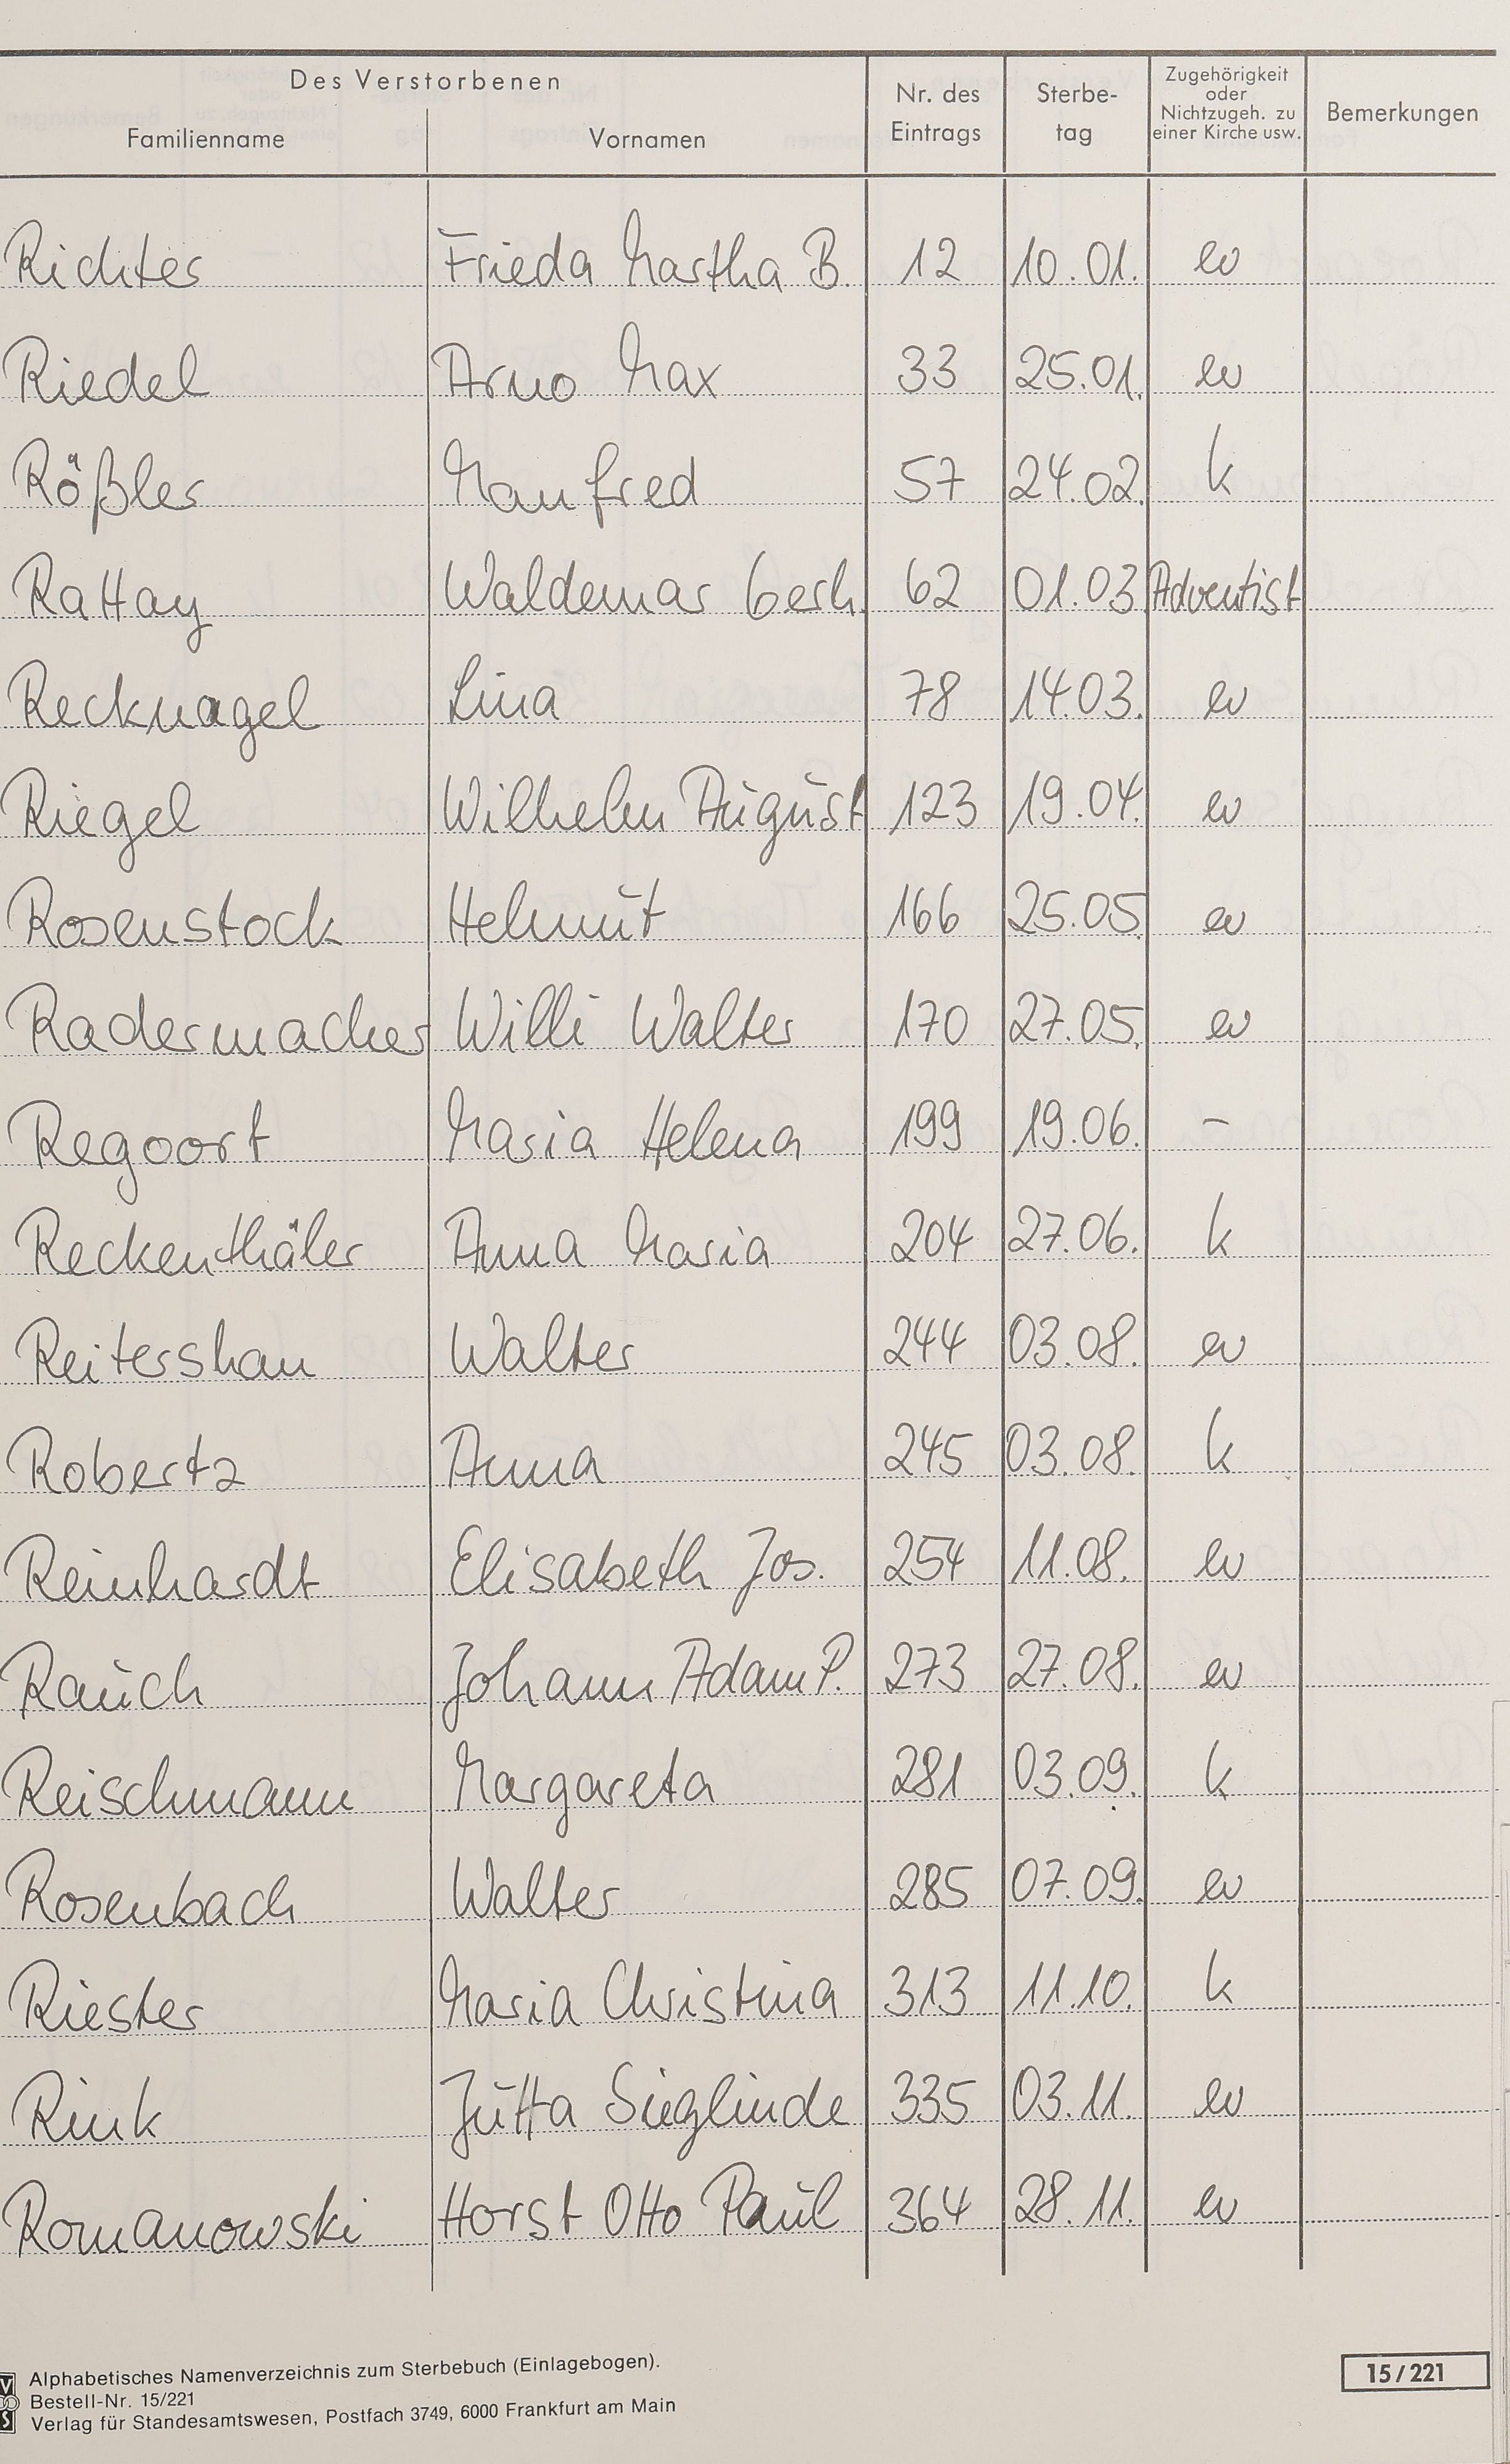 Des Verstorbenen
Familienname Vornamen Nr. des Eintrags Sterbe-tag Zugehörigkeit oder Nichtzugeh. zu einer Kirche usw. Bemerkungen
Richter Frieda Martha B. 12 10.01. ev
Riedel Arno Max 33 25.01. ev
Rößler Manfred 57 24.02. k
Rattay Waldemar Gerh. 62 01.03. Adventist
Recknagel Lina 78 14.03. ev
Riegel Wilhelm August 123 19.04. ev
Rosenstock Helmut 166 25.05. ev
Radermacher Willi Walter 170 27.05. ev
Regoort Maria Helena 199 19.06. –
Reckenthäler Anna Maria 204 27.06. k
Reitershan Walter 244 03.08. ev
Robertz Anna 245 03.08. k
Reinhardt Elisabeth Jos. 254 11.08. ev
Rauch Johann Adam P. 273 27.08. ev
Reischmann Margareta 281 03.09. k
Rosenbach Walter 285 07.09. ev
Riester Maria Christina 313 11.10. k
Rink Jutta Sieglinde 335 03.11. ev
Romanowski Horst Otto Paul 364 28.11. ev
Alphabetisches Namenverzeichnis zum Sterbebuch (Einlagebogen).
Bestell-Nr. 15/221
Verlag für Standesamtswesen, Postfach 3749, 6000 Frankfurt am Main
15/221